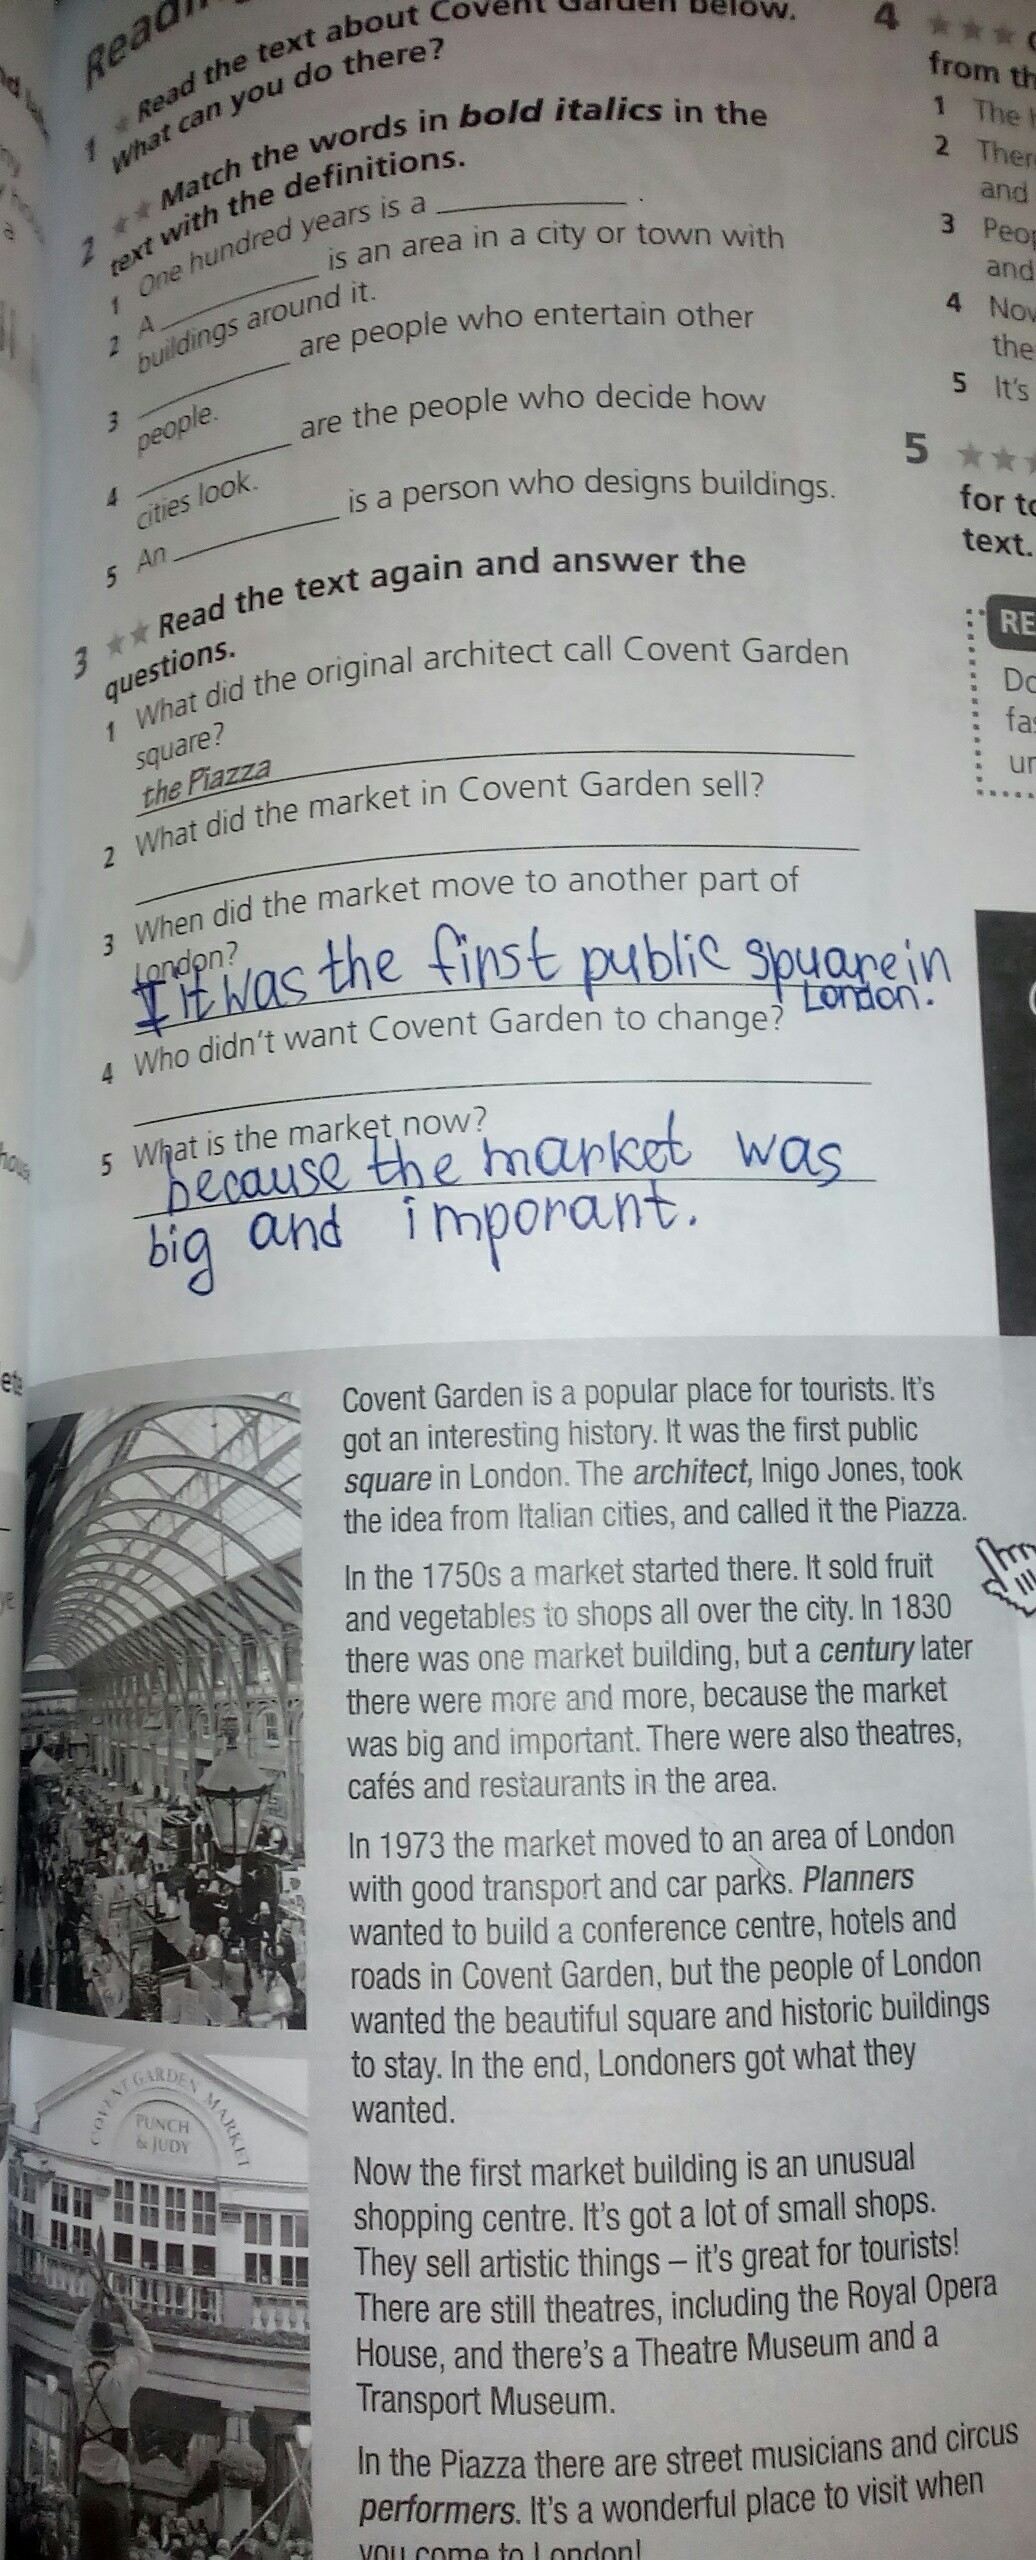 Read the text about Covent Garden below.
1 What can you do there?
Match the words in bold italics in the
2 text with the definitions.
1 One hundred years is a ______ .
2 A ______ is an area in a city or town with
buildings around it.
3 ______ are people who entertain other
people.
4 ______ are the people who decide how
cities look.
5 An ______ is a person who designs buildings.
3 Read the text again and answer the
questions.
1 What did the original architect call Covent Garden
square?
the Piazza
2 What did the market in Covent Garden sell?
3 When did the market move to another part of
London?
I it was the first public spuare in
London.
4 Who didn't want Covent Garden to change?
5 What is the market now?
because the market was
big and imporant.
Covent Garden is a popular place for tourists. It's
got an interesting history. It was the first public
square in London. The architect, Inigo Jones, took
the idea from Italian cities, and called it the Piazza.
In the 1750s a market started there. It sold fruit
and vegetables to shops all over the city. In 1830
there was one market building, but a century later
there were more and more, because the market
was big and important. There were also theatres,
cafés and restaurants in the area.
In 1973 the market moved to an area of London
with good transport and car parks. Planners
wanted to build a conference centre, hotels and
roads in Covent Garden, but the people of London
wanted the beautiful square and historic buildings
to stay. In the end, Londoners got what they
wanted.
Now the first market building is an unusual
shopping centre. It's got a lot of small shops.
They sell artistic things – it's great for tourists!
There are still theatres, including the Royal Opera
House, and there's a Theatre Museum and a
Transport Museum.
In the Piazza there are street musicians and circus
performers. It's a wonderful place to visit when
you come to London!
COVENT GARDEN MARKET
PUNCH
& JUDY
4
from th
1 The
2 Ther
and
3 Peop
and
4 Nov
the
5 It's
5
for to
text.
RE
Do
fas
un